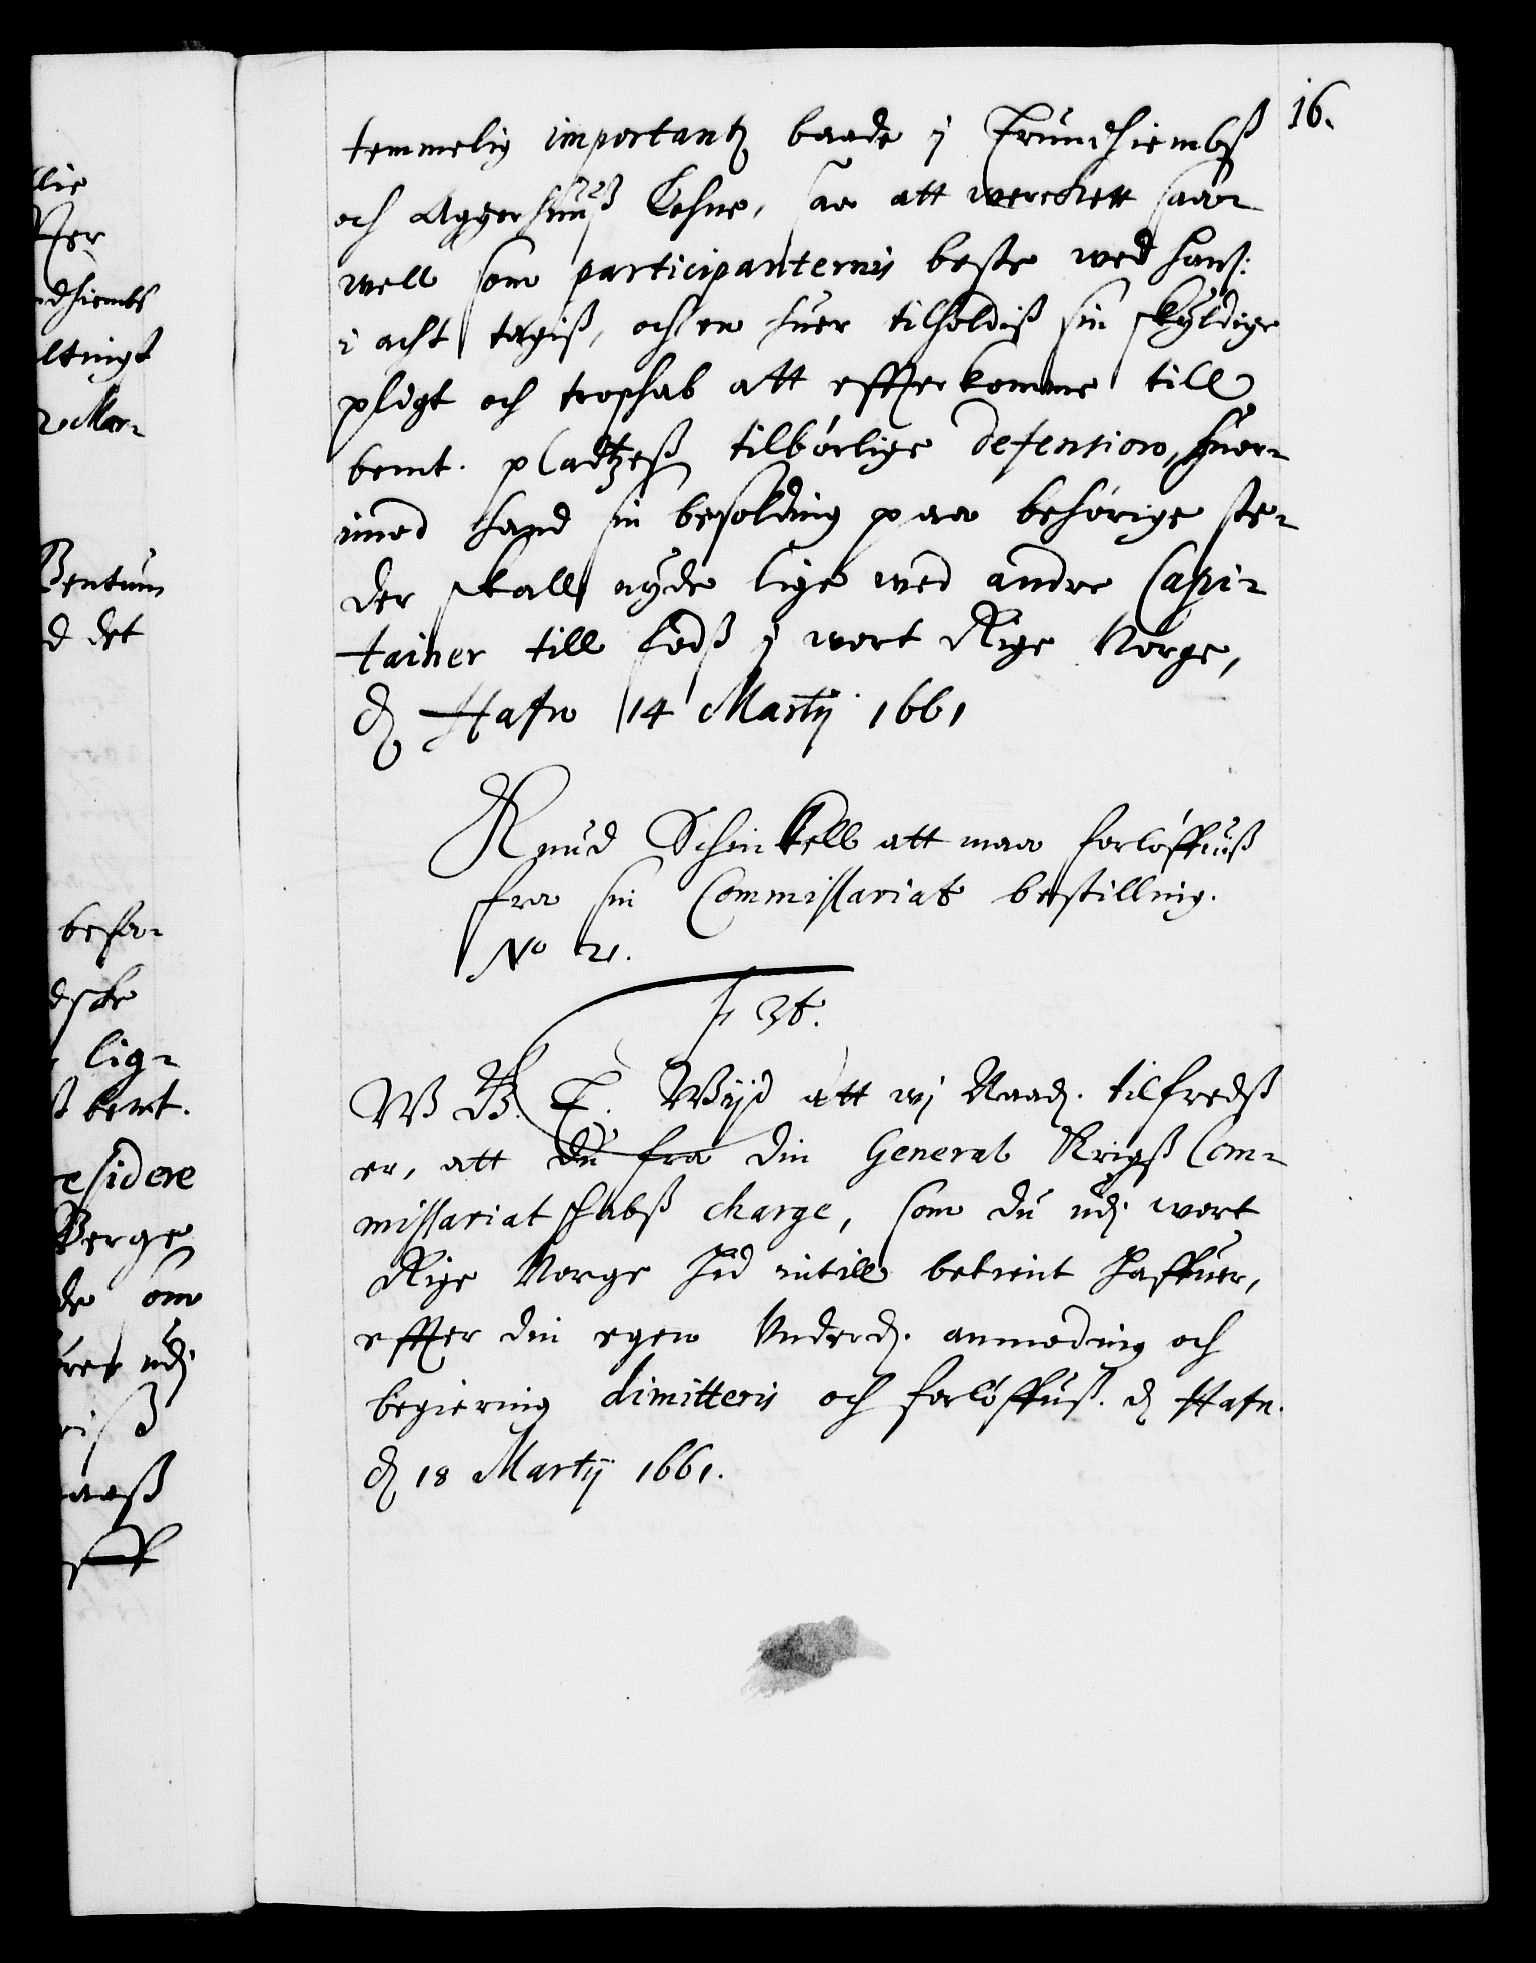 16.
temmelig importantz baade j Trundhiembß
och Aggerhuuß Lehne, saa att werckett saa-
well som participanternis beste wed hans:
i acht tagiß, och en huer tilholdiß sin skyldige
pligt och troschab att effterkomme till
bemt. pladtzeß tilbörlige defension, huor-
imod hand sin besolding paa behörige ste-
der skall nyde lige wed andre Capi-
tainer till fodß j wort Rige Norge,
Hafn 14 Martij 1661
Knud Schinkell att maa forlöffuiß
fra sin Commissariat bestilling.
No 2.
F 3t.
W G. T. Wijd att wj Naad. tilfredß
er, att du fra din General Krigß Com-
missariatschabß charge, som du udj wort
Rige Norge hid indtill betient haffuer,
effter din egen Underd. anmoding och
begiering dimitteris och forlöffuiß. Hafn.
d 18 Martij 1661.